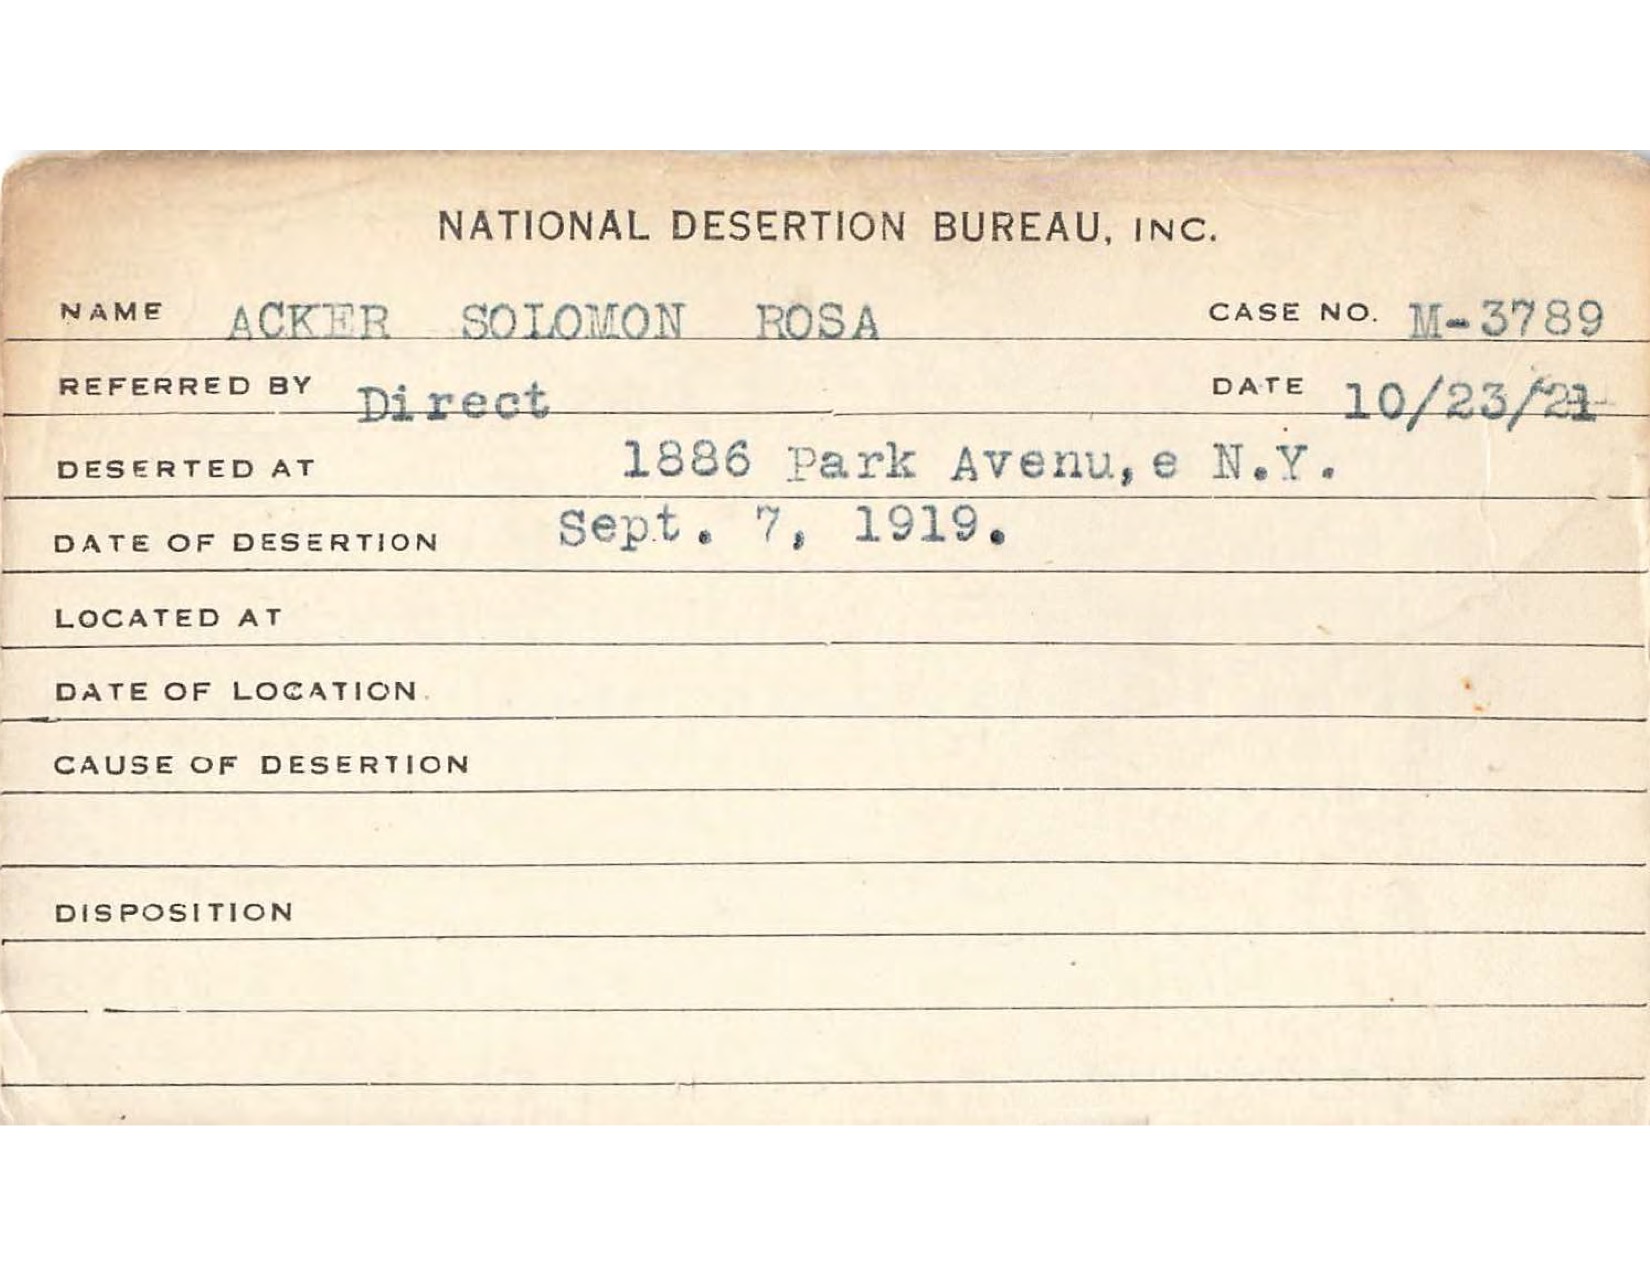 NATIONAL DESERTION BUREAU, INC.
NAME ACKER SOLOMON ROSA CASE NO. M-3789
REFERRED BY Direct DATE 10/23/21
DESERTED AT 1886 Park Avenu,e N.Y.
DATE OF DESERTION Sept. 7, 1919.
LOCATED AT
DATE OF LOCATION
CAUSE OF DESERTION
DISPOSITION